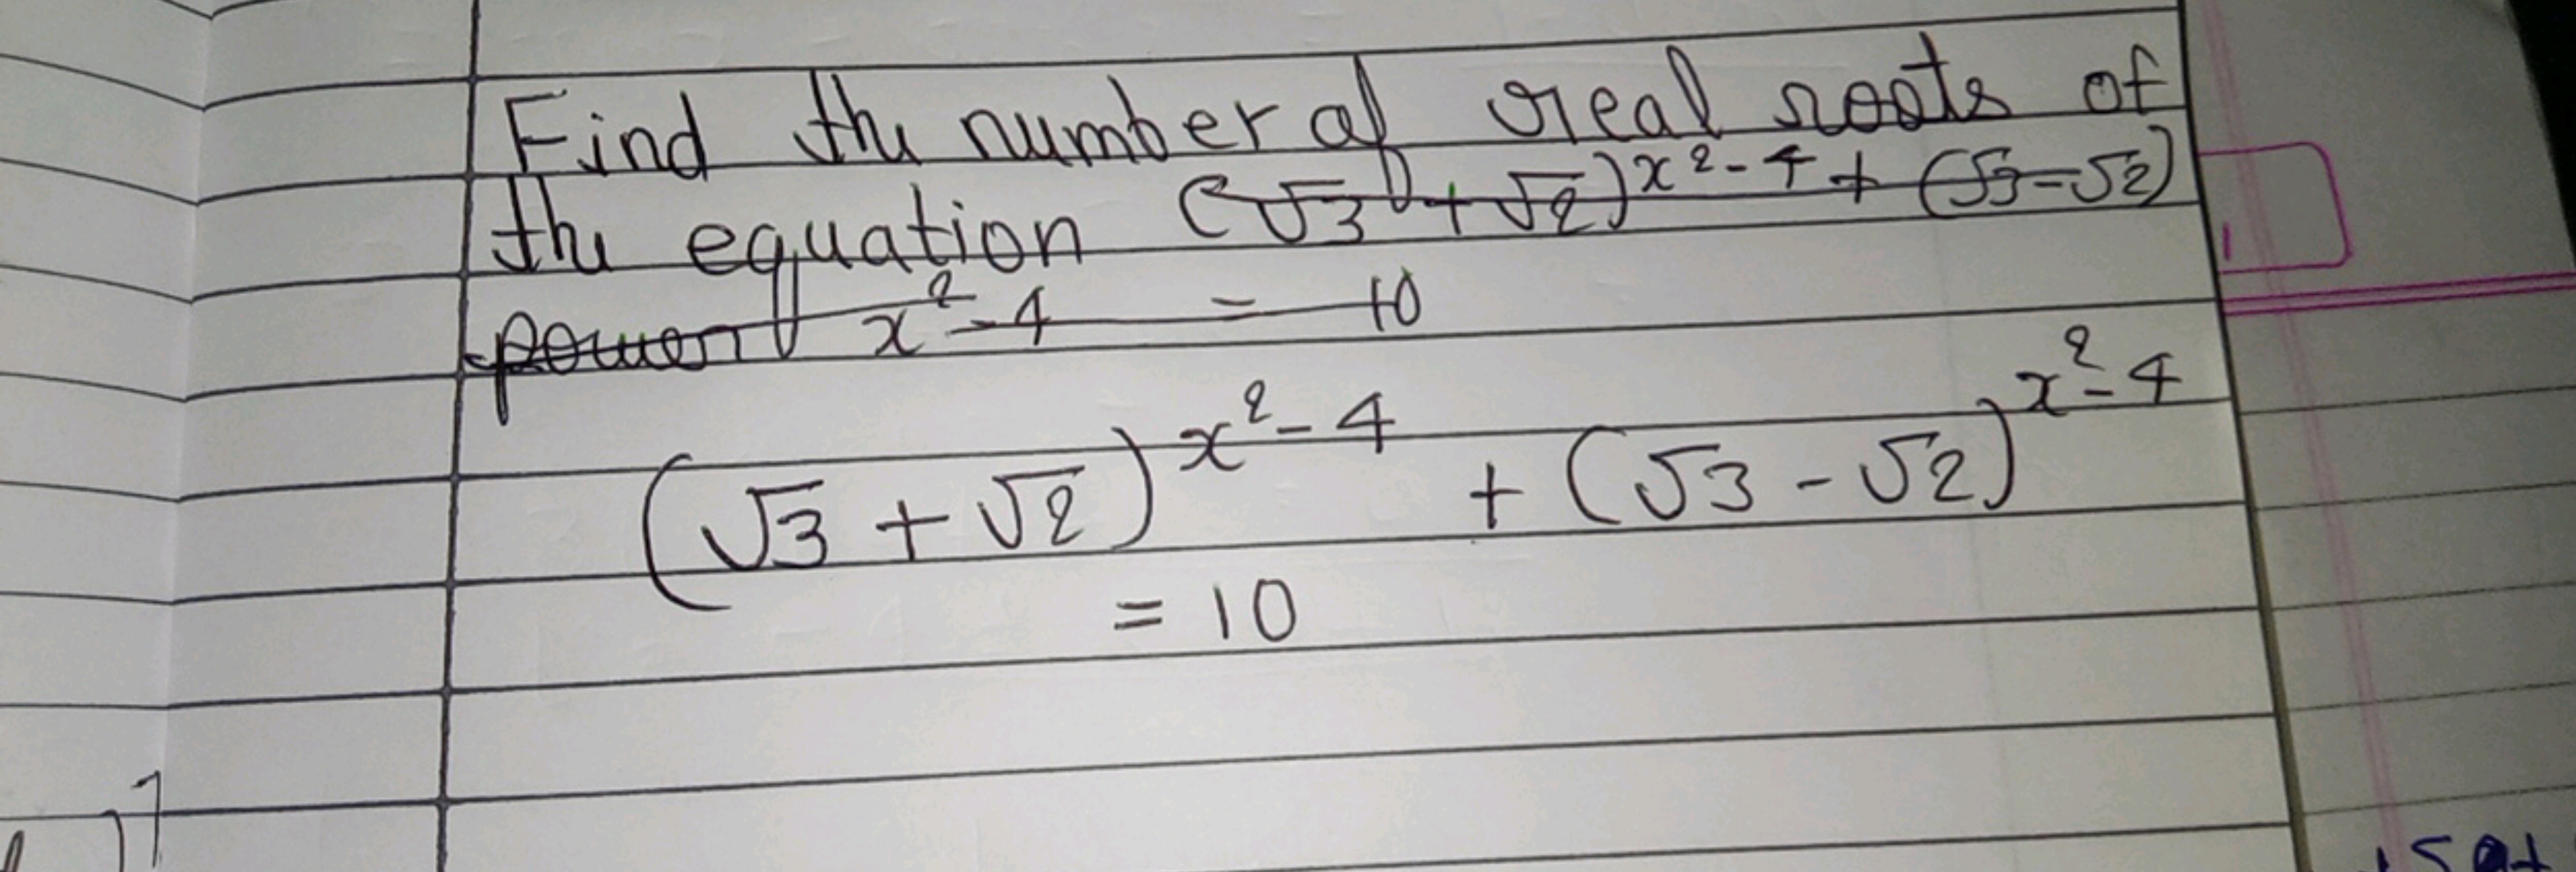 Find the number of real roots of
the equation (√3 + √2)^x²-4 + (√3-√2)
power x²-4 = 10
(√3 + √2)^x²-4 + (√3 - √2)^x²-4
= 10